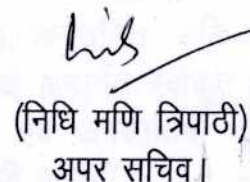 (निधि मणि त्रिपाठी)
अपर सचिव।